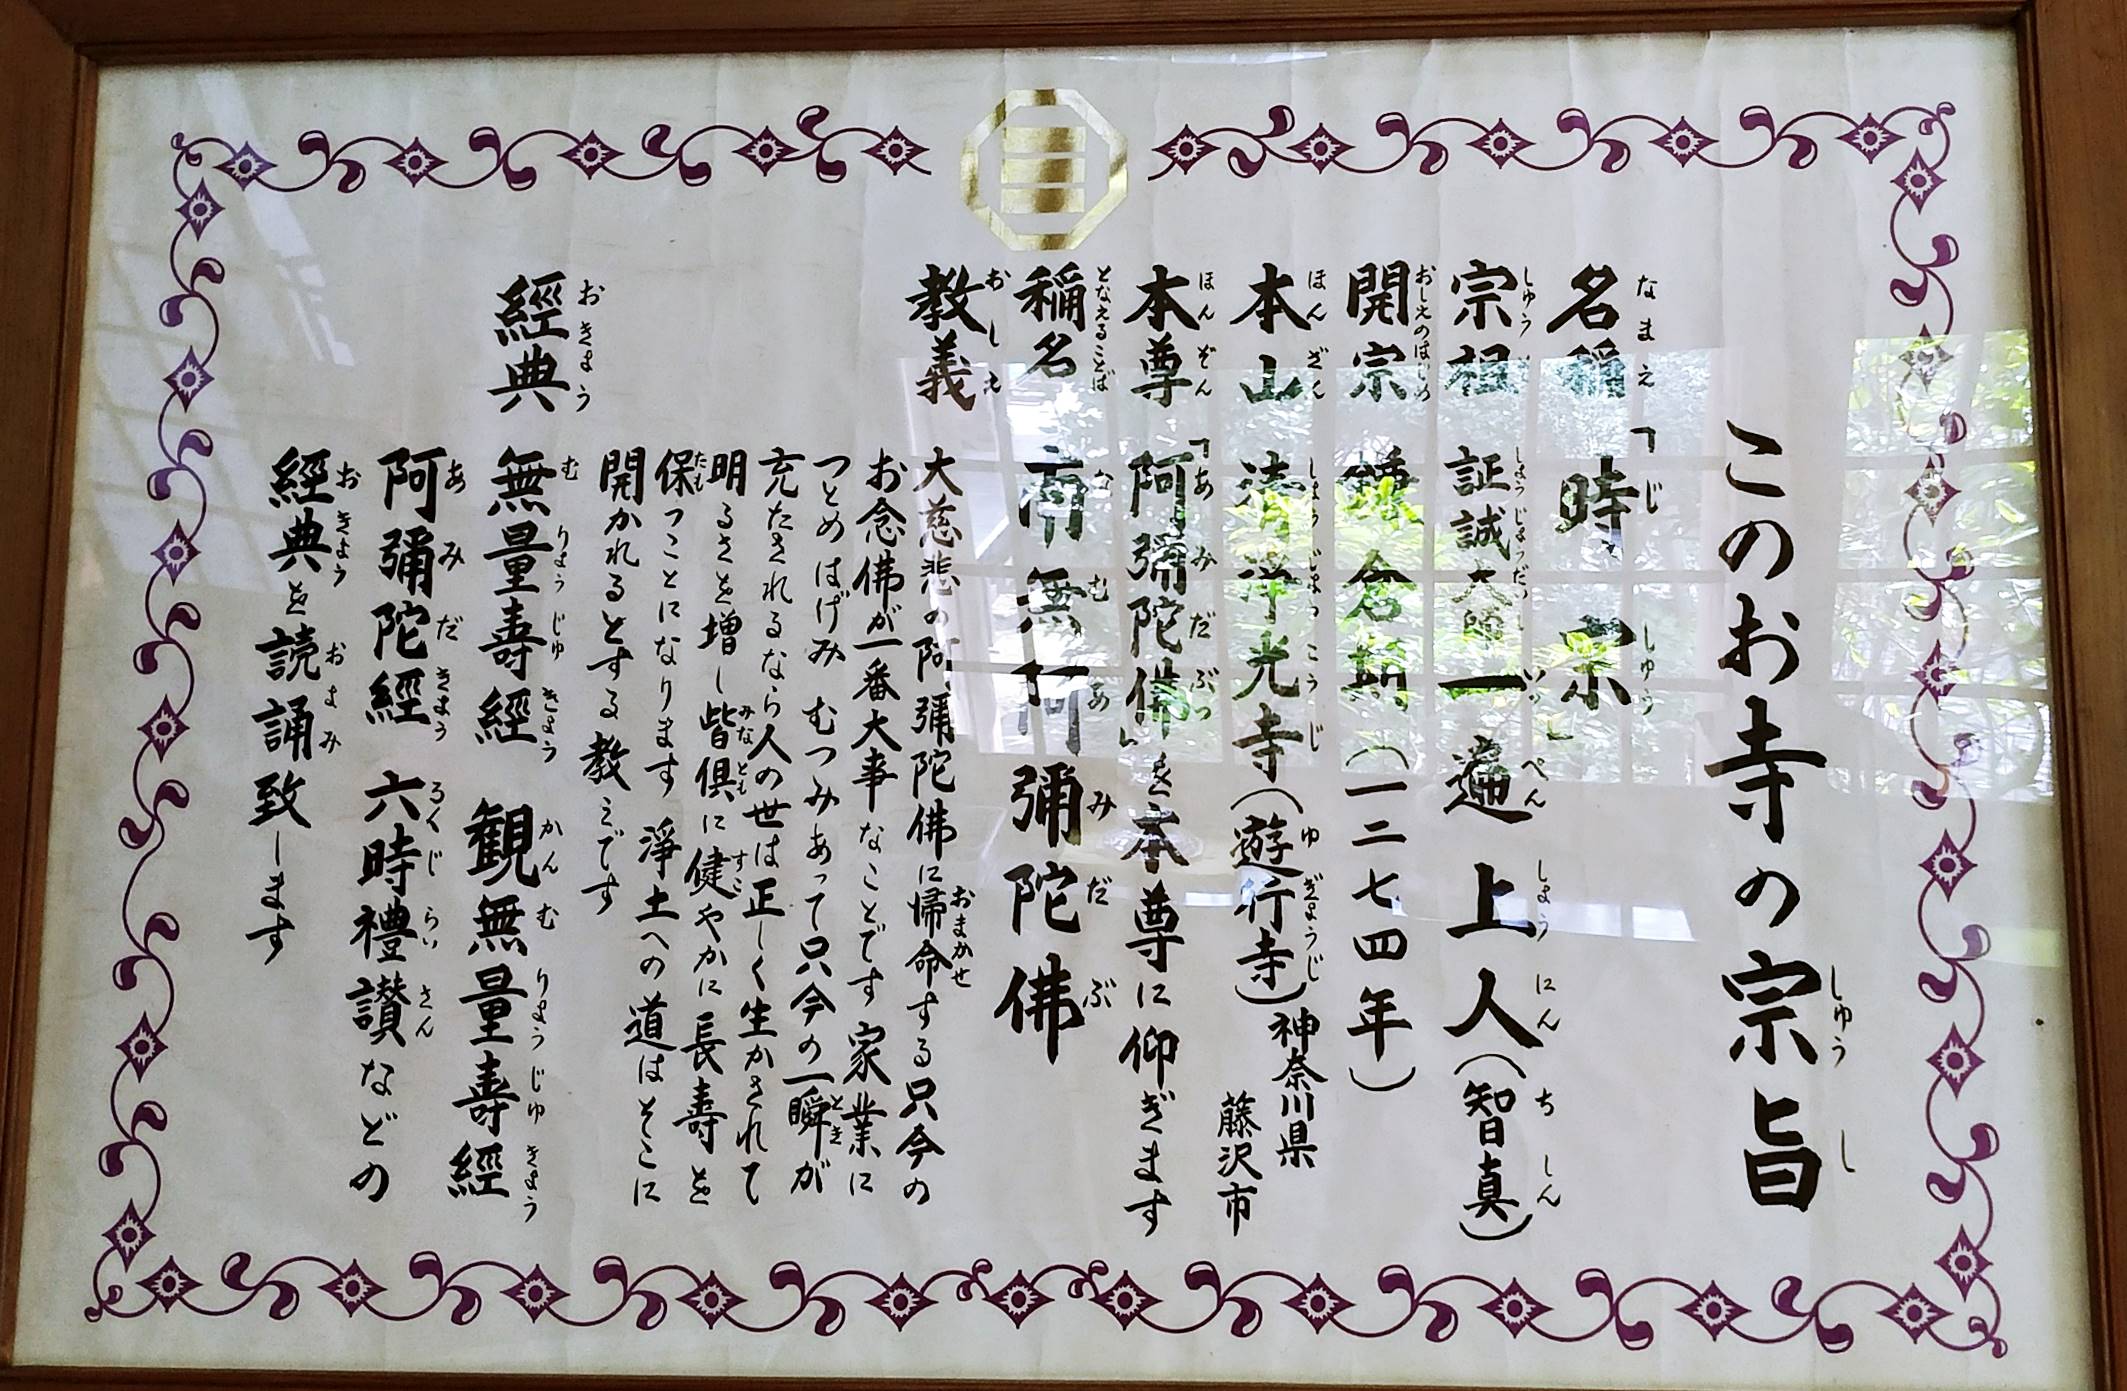 このお寺の宗旨
名稱 「時宗」
宗祖 証誠大師 一遍上人(智真)
開宗 鎌倉期(一二七四年)
本山 清浄光寺(遊行寺)神奈川県藤沢市
本尊 「阿彌陀佛」を本尊に仰ぎます
稱名 南無阿彌陀佛
教義 大慈悲の阿彌陀佛に帰命する只今の
お念佛が一番大事なことです 家業に
つとめはげみ むつみあって只今の一瞬が
充たされるなら人の世は正しく生かされて
明るさを増し皆倶に健やかに長壽を
保つことになります 淨土への道はそこに
開かれるとする教えです
經典 無量壽經 観無量壽經
阿彌陀經 六時禮讃などの
經典を読誦致します